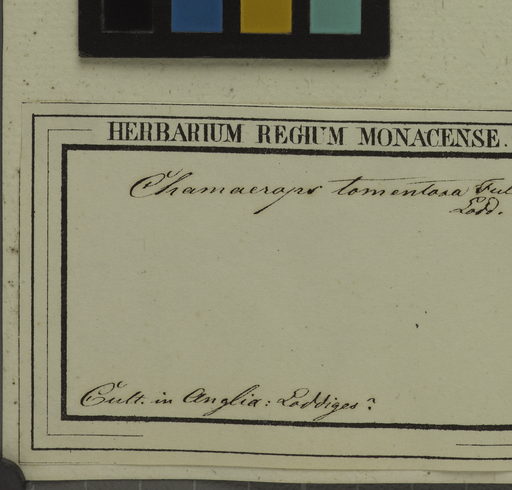 HERBARIUM REGIUM MONACENSE.
Chamaerops tomentosa Ful
Lodd.
Cult. in Anglia: Loddiges?